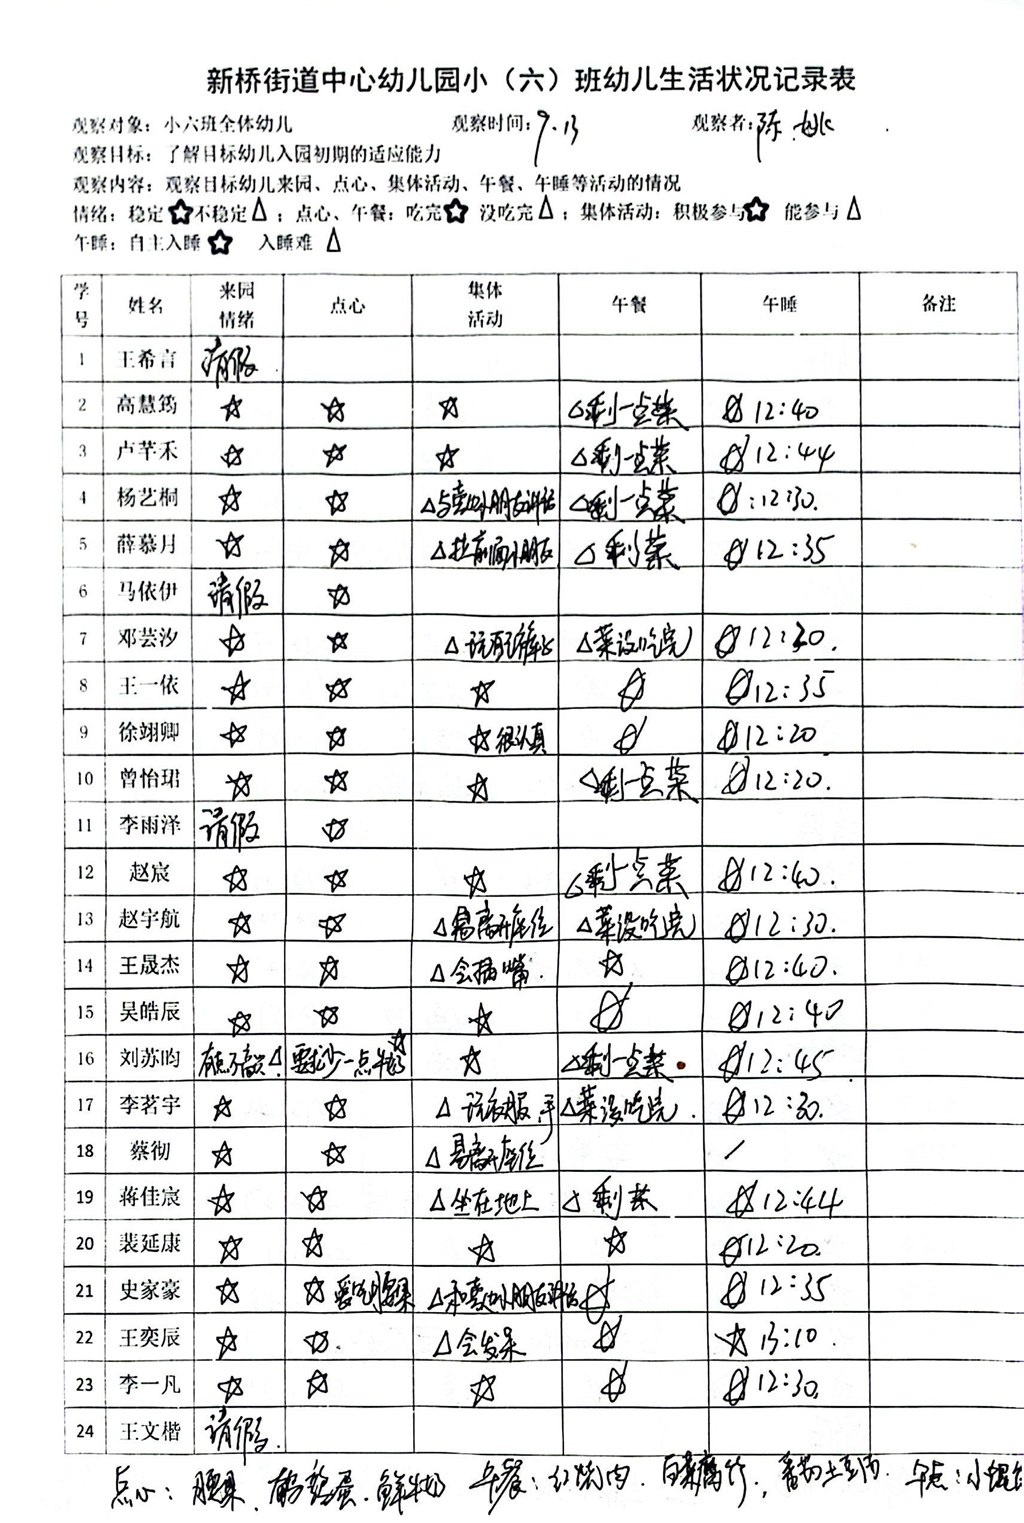 新桥街道中心幼儿园小（六）班幼儿生活状况记录表
观察对象：小六班全体幼儿 观察时间：9.13 观察者：陈姚
观察目标：了解目标幼儿入园初期的适应能力
观察内容：观察目标幼儿来园、点心、集体活动、午餐、午睡等活动的情况
情绪：稳定☆不稳定△；点心、午餐：吃完☆ 没吃完△；集体活动：积极参与☆ 能参与△
午睡：自主入睡☆ 入睡难△
学号 姓名 来园情绪 点心 集体活动 午餐 午睡 备注
1 王希言 请假
2 高慧筠 ☆ ☆ ☆ △剩一点菜 ☆12:40
3 卢芊禾 ☆ ☆ ☆ △剩一点菜 ☆12:44
4 杨艺桐 ☆ ☆ △与旁边小朋友讲话 △剩一点菜 ☆:12:30.
5 薛慕月 ☆ ☆ △拉前面小朋友 △剩菜 ☆12:35
6 马依伊 请假 ☆
7 邓芸汐 ☆ ☆ △玩 △菜没吃完 ☆12:30.
8 王一依 ☆ ☆ ☆ ☆ ☆12:35
9 徐翊卿 ☆ ☆ ☆很认真 ☆ ☆12:20
10 曾怡珺 ☆ ☆ ☆ △剩一点菜 ☆12:20.
11 李雨泽 请假 ☆
12 赵宸 ☆ ☆ ☆ △剩一点菜 ☆12:40.
13 赵宇航 ☆ ☆ △易离开座位 △菜没吃完 ☆12:30.
14 王晟杰 ☆ ☆ △会插嘴. ☆ ☆12:40.
15 吴皓辰 ☆ ☆ ☆ ☆ ☆12:40
16 刘苏昀 有点不高兴△! 要求少一点牛奶☆ ☆ △剩一点菜. ☆12:45
17 李茗宇 ☆ ☆ △玩衣服,手 △菜没吃完. ☆12:30.
18 蔡彻 ☆ ☆ △易离开座位 /
19 蒋佳宸 ☆ ☆ △坐在地上 △剩菜 ☆12:44
20 裴延康 ☆ ☆ ☆ ☆ ☆12:20.
21 史家豪 ☆ ☆爱吃腰果 △和旁边小朋友讲话 ☆ ☆12:35
22 王奕辰 ☆ ☆. △会发呆 ☆ ☆13:10.
23 李一凡 ☆ ☆ ☆ ☆ ☆12:30.
24 王文楷 请假.
点心：腰果、鹌鹑蛋、鲜牛奶 午餐：红烧肉、白菜腐竹、番茄土豆汤. 午点：小馄